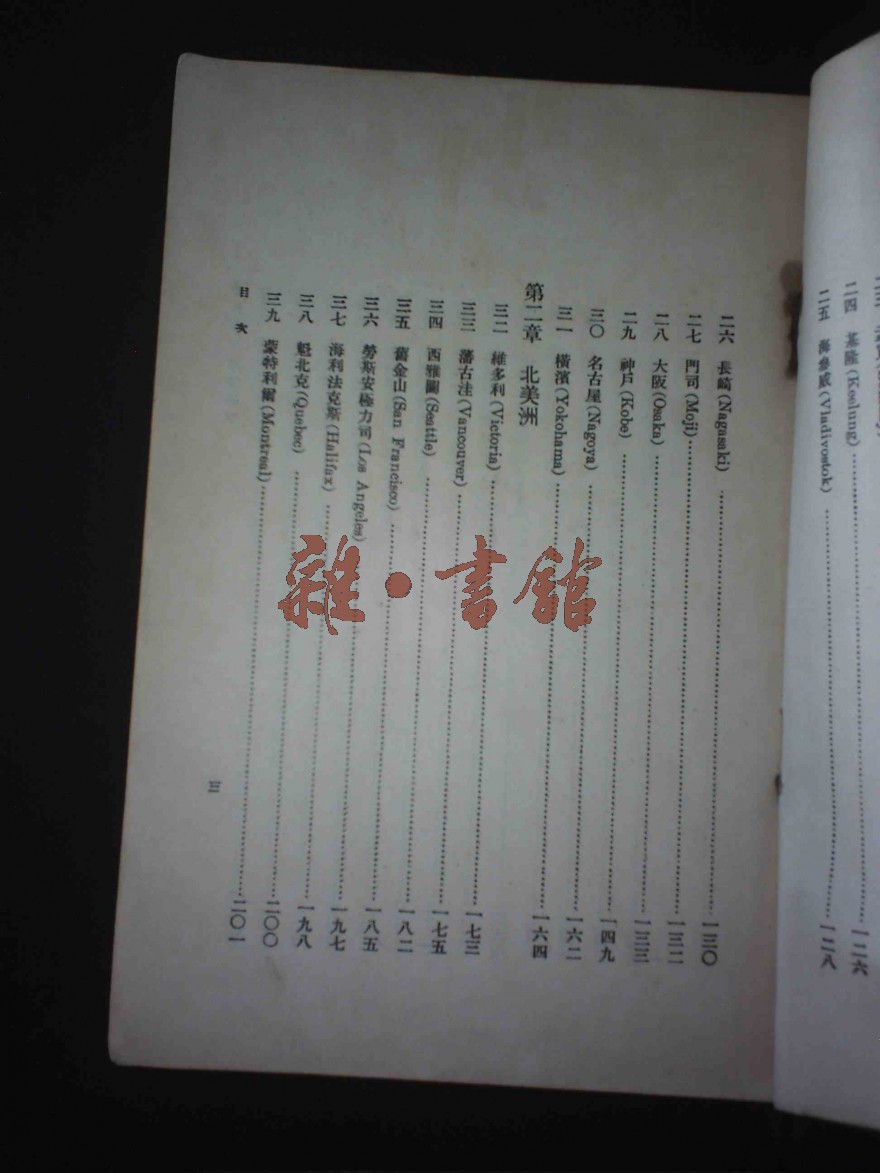 二四 基隆(Keelung)……一二六
二五 海參威(Vladivostok)……一二八
二六 長崎(Nagasaki)……一三〇
二七 門司(Moji)……一三二
二八 大阪(Osaka)……一三三
二九 神戶(Kobe)……一四九
三〇 名古屋(Nagoya)……一六二
三一 橫濱(Yokohama)……一六四
第二章 北美洲
三二 維多利(Victoria)……一七三
三三 藩古洼(Vancouver)……一七五
三四 西雅圖(Seattle)……一八二
三五 舊金山(San Francisco)……一八五
三六 勞斯安極力司(Los Angeles)……一九七
三七 海利法克斯(Halifax)……一九八
三八 魁北克(Quebec)……二〇〇
三九 蒙特利爾(Montreal)……二〇一
目次
三
雜·書館